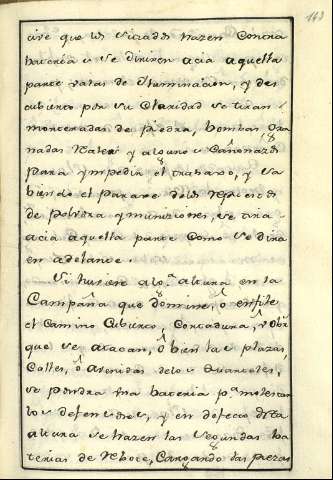 143
cive que los sitiados hazen Contra
bateria u se dirixen acia aquella
parte valas de Yluminacion, y des
cubierto por su Claridad se tiran
monteradas de piedra, bombas Gra
nadas Reales y algunos Cañonazos
para ympedir el travaxo, y sa
biendo el parage de los Repuestos
de polvora y municiones, se tira
acia aquella parte como se dira
en adelante.
Si huviere alg.ª altura en la
Campaña que domine, ó enfile
el Camino Cubierto, Cortadura, ú Obra
que se atacan, ó bien las plazas,
Calles, ó avenidas de los Quarteles,
se pondra una bateria p.ª molestar
los defensores, y en defecto desta
altura se hazen las segundas ba
terias de Rebote, Cargando las piezas